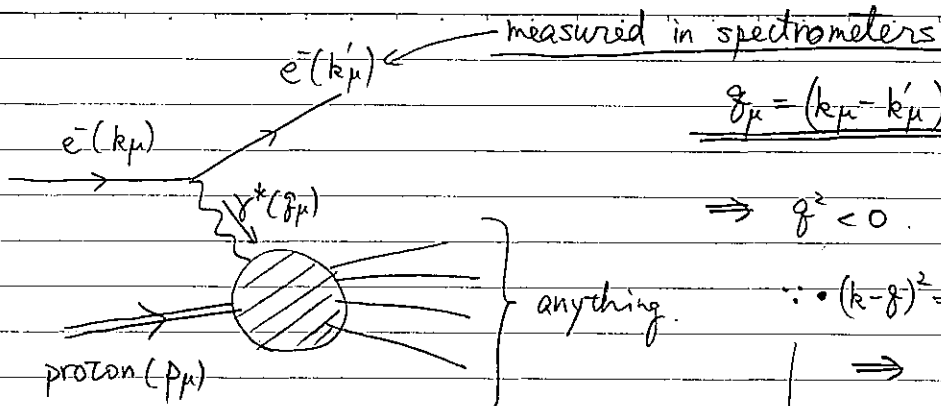 measured in spectrometers
e⁻(k'μ)
qμ = (kμ - k'μ)
e⁻(kμ)
γ*(qμ)
⇒ q² < 0.
anything.
∵ • (k-q)² =
⇒
proton (pμ)